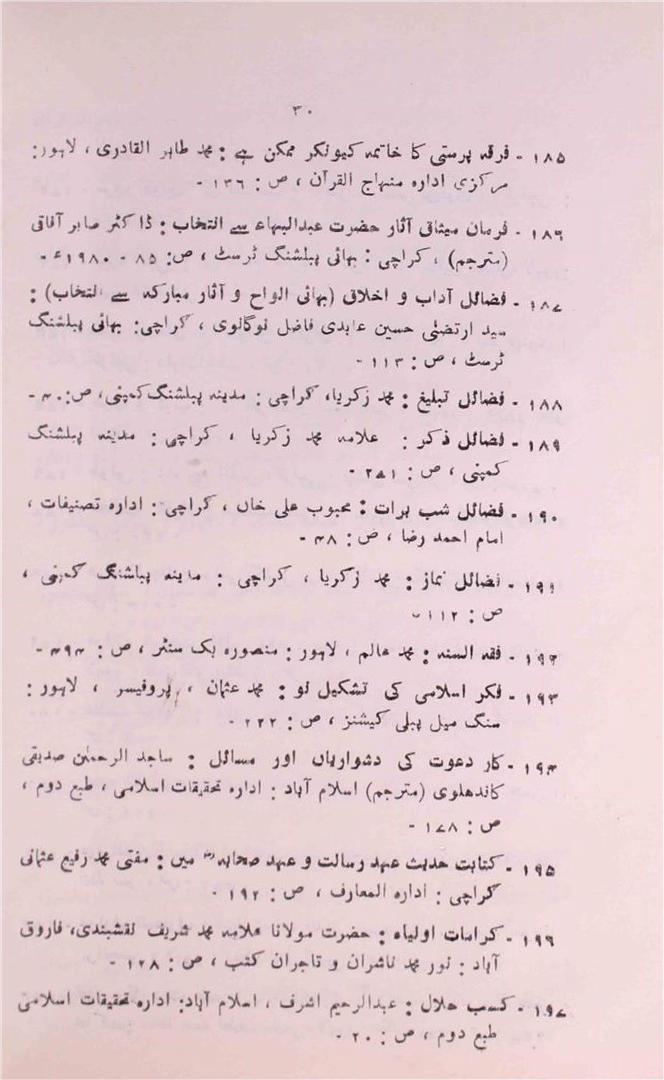 ۳۰
۱۸۵ - فرقہ پرستی کا خاتمہ کیونکر ممکن ہے : محمد طاہر القادری ، لاہور:
مرکزی ادارہ منہاج القرآن ، ص : ۱۳۶ -
۱۸۶ - فرمان میثاق آثار حضرت عبدالبہاء سے انتخاب : ڈاکٹر صابر آفاقی
(مترجم) ، کراچی : بہائی پبلشنگ ٹرسٹ ، ص: ۸۵ - ۱۹۸۰ء -
۱۸۷ - فضائل آداب و اخلاق (بہائی الواح و آثار مبارکہ سے انتخاب) :
سید ارتضیٰ حسین عابدی فاضل نوگانوی ، کراچی: بہائی پبلشنگ
ٹرسٹ ، ص : ۱۱۳ -
۱۸۸ - فضائل تبلیغ : محمد زکریا، کراچی : مدینہ پبلشنگ کمپنی، ص: ۴۰ -
۱۸۹ - فضائل ذکر : علامہ محمد زکریا ، کراچی : مدینہ پبلشنگ
کمپنی ، ص : ۲۵۱ -
۱۹۰ - فضائل شب برات : محبوب علی خاں ، کراچی : ادارہ تصنیفات ،
امام احمد رضا ، ص : ۴۸ -
۱۹۱ - فضائل نماز : محمد زکریا ، کراچی : مدینہ پبلشنگ کمپنی ،
ص : ۱۱۲ -
۱۹۲ - فقہ السنہ : محمد عالم ، لاہور : منصورہ بک سنٹر ، ص : ۴۹۴ -
۱۹۳ - فکر اسلامی کی تشکیل نو : محمد عثمان ، پروفیسر ، لاہور :
سنگ میل پبلی کیشنز ، ص : ۲۲۲ -
۱۹۴ - کار دعوت کی دشواریاں اور مسائل : ساجد الرحمٰن صدیقی
کاندھلوی (مترجم) اسلام آباد : ادارہ تحقیقات اسلامی ، طبع دوم ،
ص : ۱۷۸ -
۱۹۵ - کتابت حدیث عہد رسالت و عہد صحابہؓ میں : مفتی محمد رفیع عثمانی
کراچی : ادارہ المعارف ، ص : ۱۹۲ -
۱۹۶ - کرامات اولیاء : حضرت مولانا علامہ محمد شریف نقشبندی، فاروق
آباد : نور محمد ناشران و تاجران کتب ، ص : ۱۲۸ -
۱۹۷ - کسب حلال : عبدالرحیم اشرف ، اسلام آباد: ادارہ تحقیقات اسلامی
طبع دوم ، ص : ۲۰ -